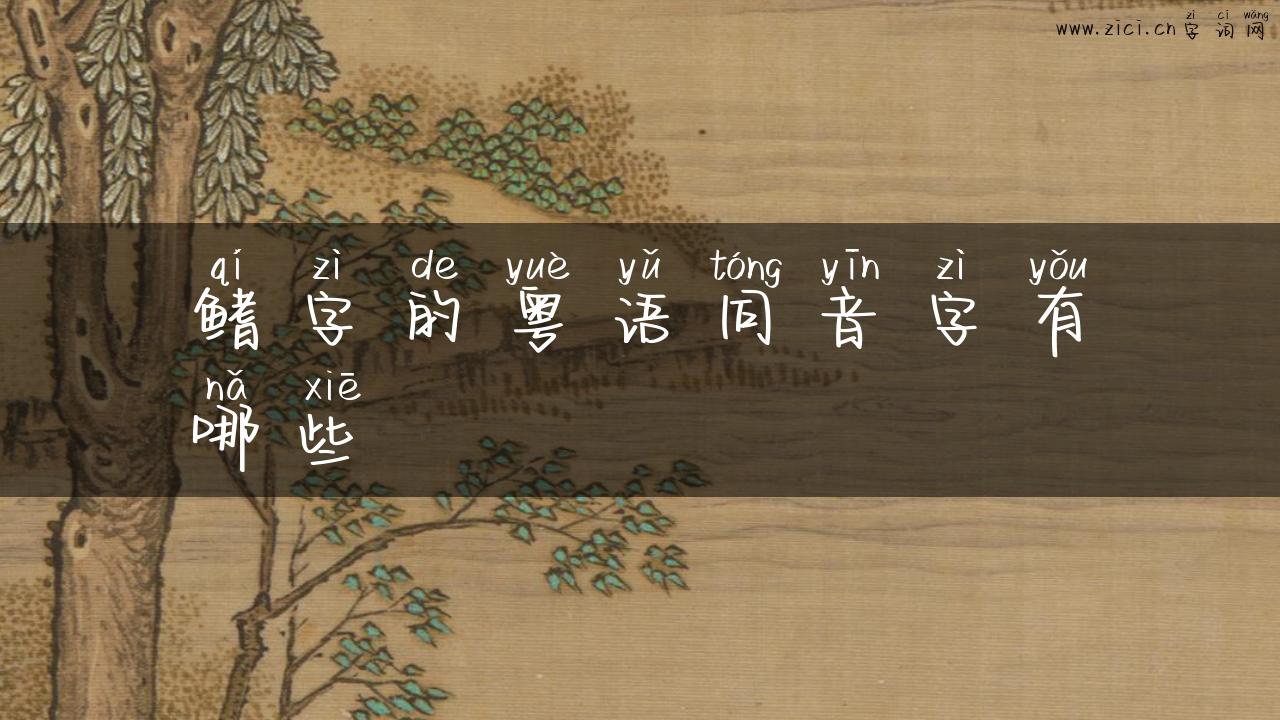 zì cí wǎng
www.zici.cn 字 词 网
qí zì de yuè yǔ tóng yīn zì yǒu
鳍 字 的 粤 语 同 音 字 有
nǎ xiē
哪 些